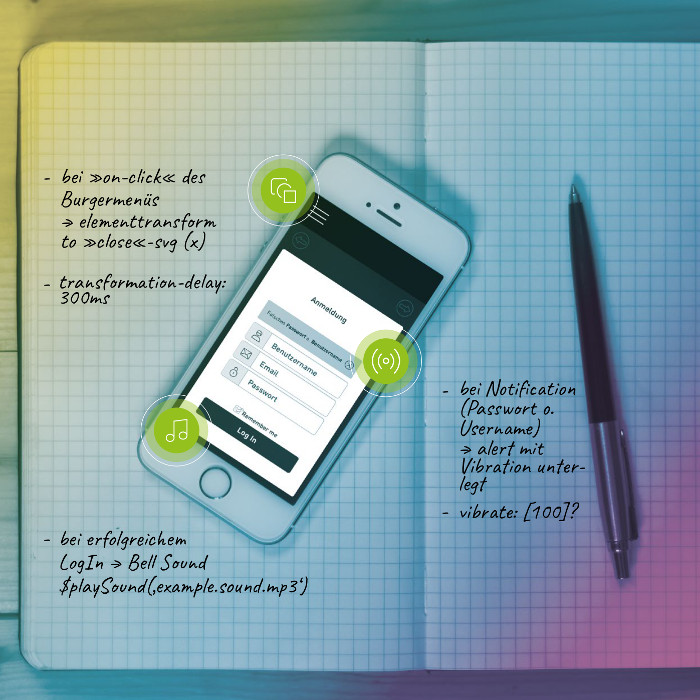 - bei »on-click« des
Burgermenüs
→ elementtransform
to »close«-svg (x)
- transformation-delay:
300ms
Anmeldung
Falsches Passwort o. Benutzername
Benutzername
Email
Passwort
Remember me
Log In
- bei Notification
(Passwort o.
Username)
→ alert mit
Vibration unter-
legt
- vibrate: [100]?
- bei erfolgreichem
LogIn → Bell Sound
$playSound(‚example.sound.mp3‘)